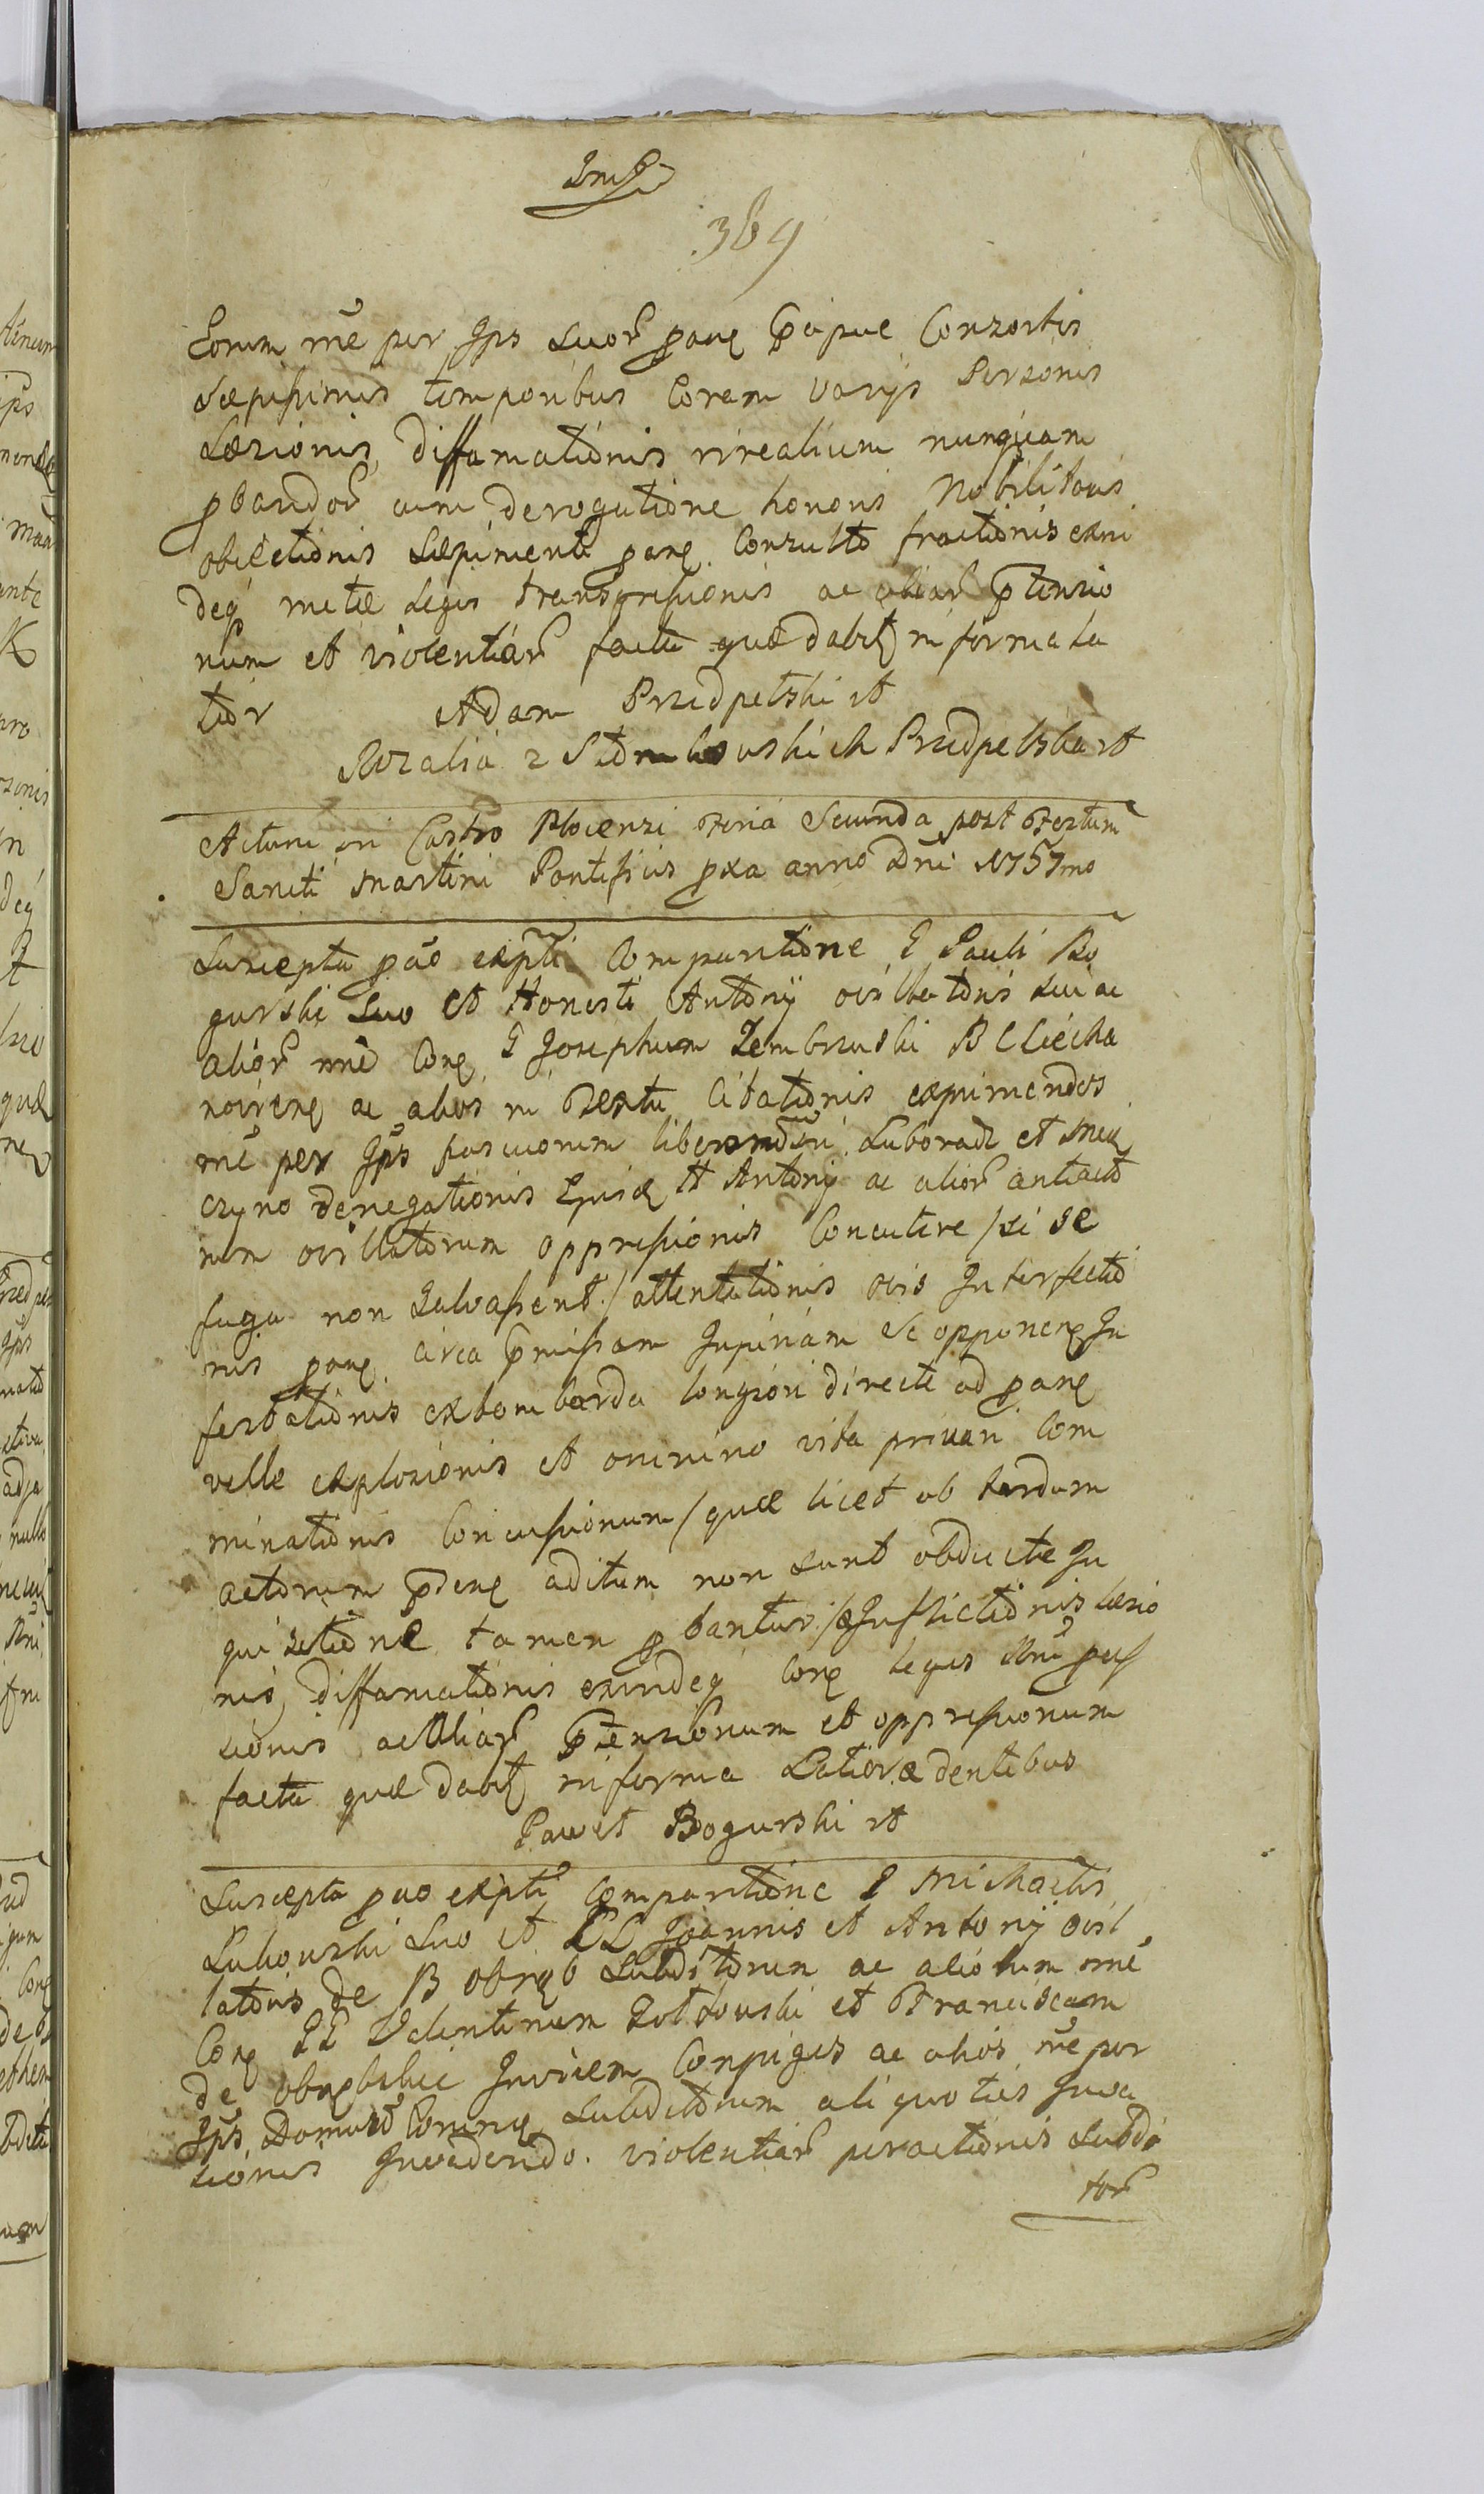 369
Eorum mē per Jps suor̃ pang p̄cipue Conzortis
sæpissimis temporibus Coram varijs Personis
Læzionis, diffamationis nunquam
pbandor̃ cum derogatione honoris Nobilitatis
obiectionis Sæpimenti pang Conzulto fractionis exni
deq̃ metæ Legis transgressionis ac aliar̃ p̄tenzio
num et violentiar̃ facta quæ dabit in forma la
tior Adam Przedpełski et
Rozalia z Przedpelska et
Actum in Castro Plocenzi Feria Secunda post Festum
Sancti Martini Pontificis pxa anno Dni 1757mo
Suscepta pāo exptī Comparitione G Pauli Bo
gurski suo et Honesti Antonij ovillatoris sui ac
alior̃ mē Cong G Josephum Zembrzuski B Ciecha
ac alios in Textu Citationis expimendos
mē per Jps pascuorum Laborade et
czyno denegationis H Antonij ac alior̃
rum ovillatorum oppressionis Concutere /si se
fuga non Salvassent/ attentationis ovis Interfectio
nis pang circa p̄missam Injuriam se opponeng In
festationis ex bombarda longiori directe ad pang
velle explozionis et omnino vita privari Com
minationis Concussionum /quæ licet ob tardum
actorum aditum non sunt obducta In
quisitione tamen pbantur/ Inflictionis læzio
nis, diffamationis exindeq̃ Cong legis
sionis ac aliar̃ p̄tenzionum et oppressionum
facta quæ dabit in forma Latior cedentibus
Paweł Bogurski et
Suscepta pāo exptī Comparitione G Michaelis
Lubowski suo et LL Joannis et Antonij ovil
latoris de B Obręb Subditorum ac aliorum mē
Cong GG Valentinum Zołtowski et Franciscam
de Obrębskie Invicem Conjuges ac alios mē per
Jps Domus Subditorum aliquoties Inva
sionis Invadendo violentiar̃ peractionis Subdi
tor̃